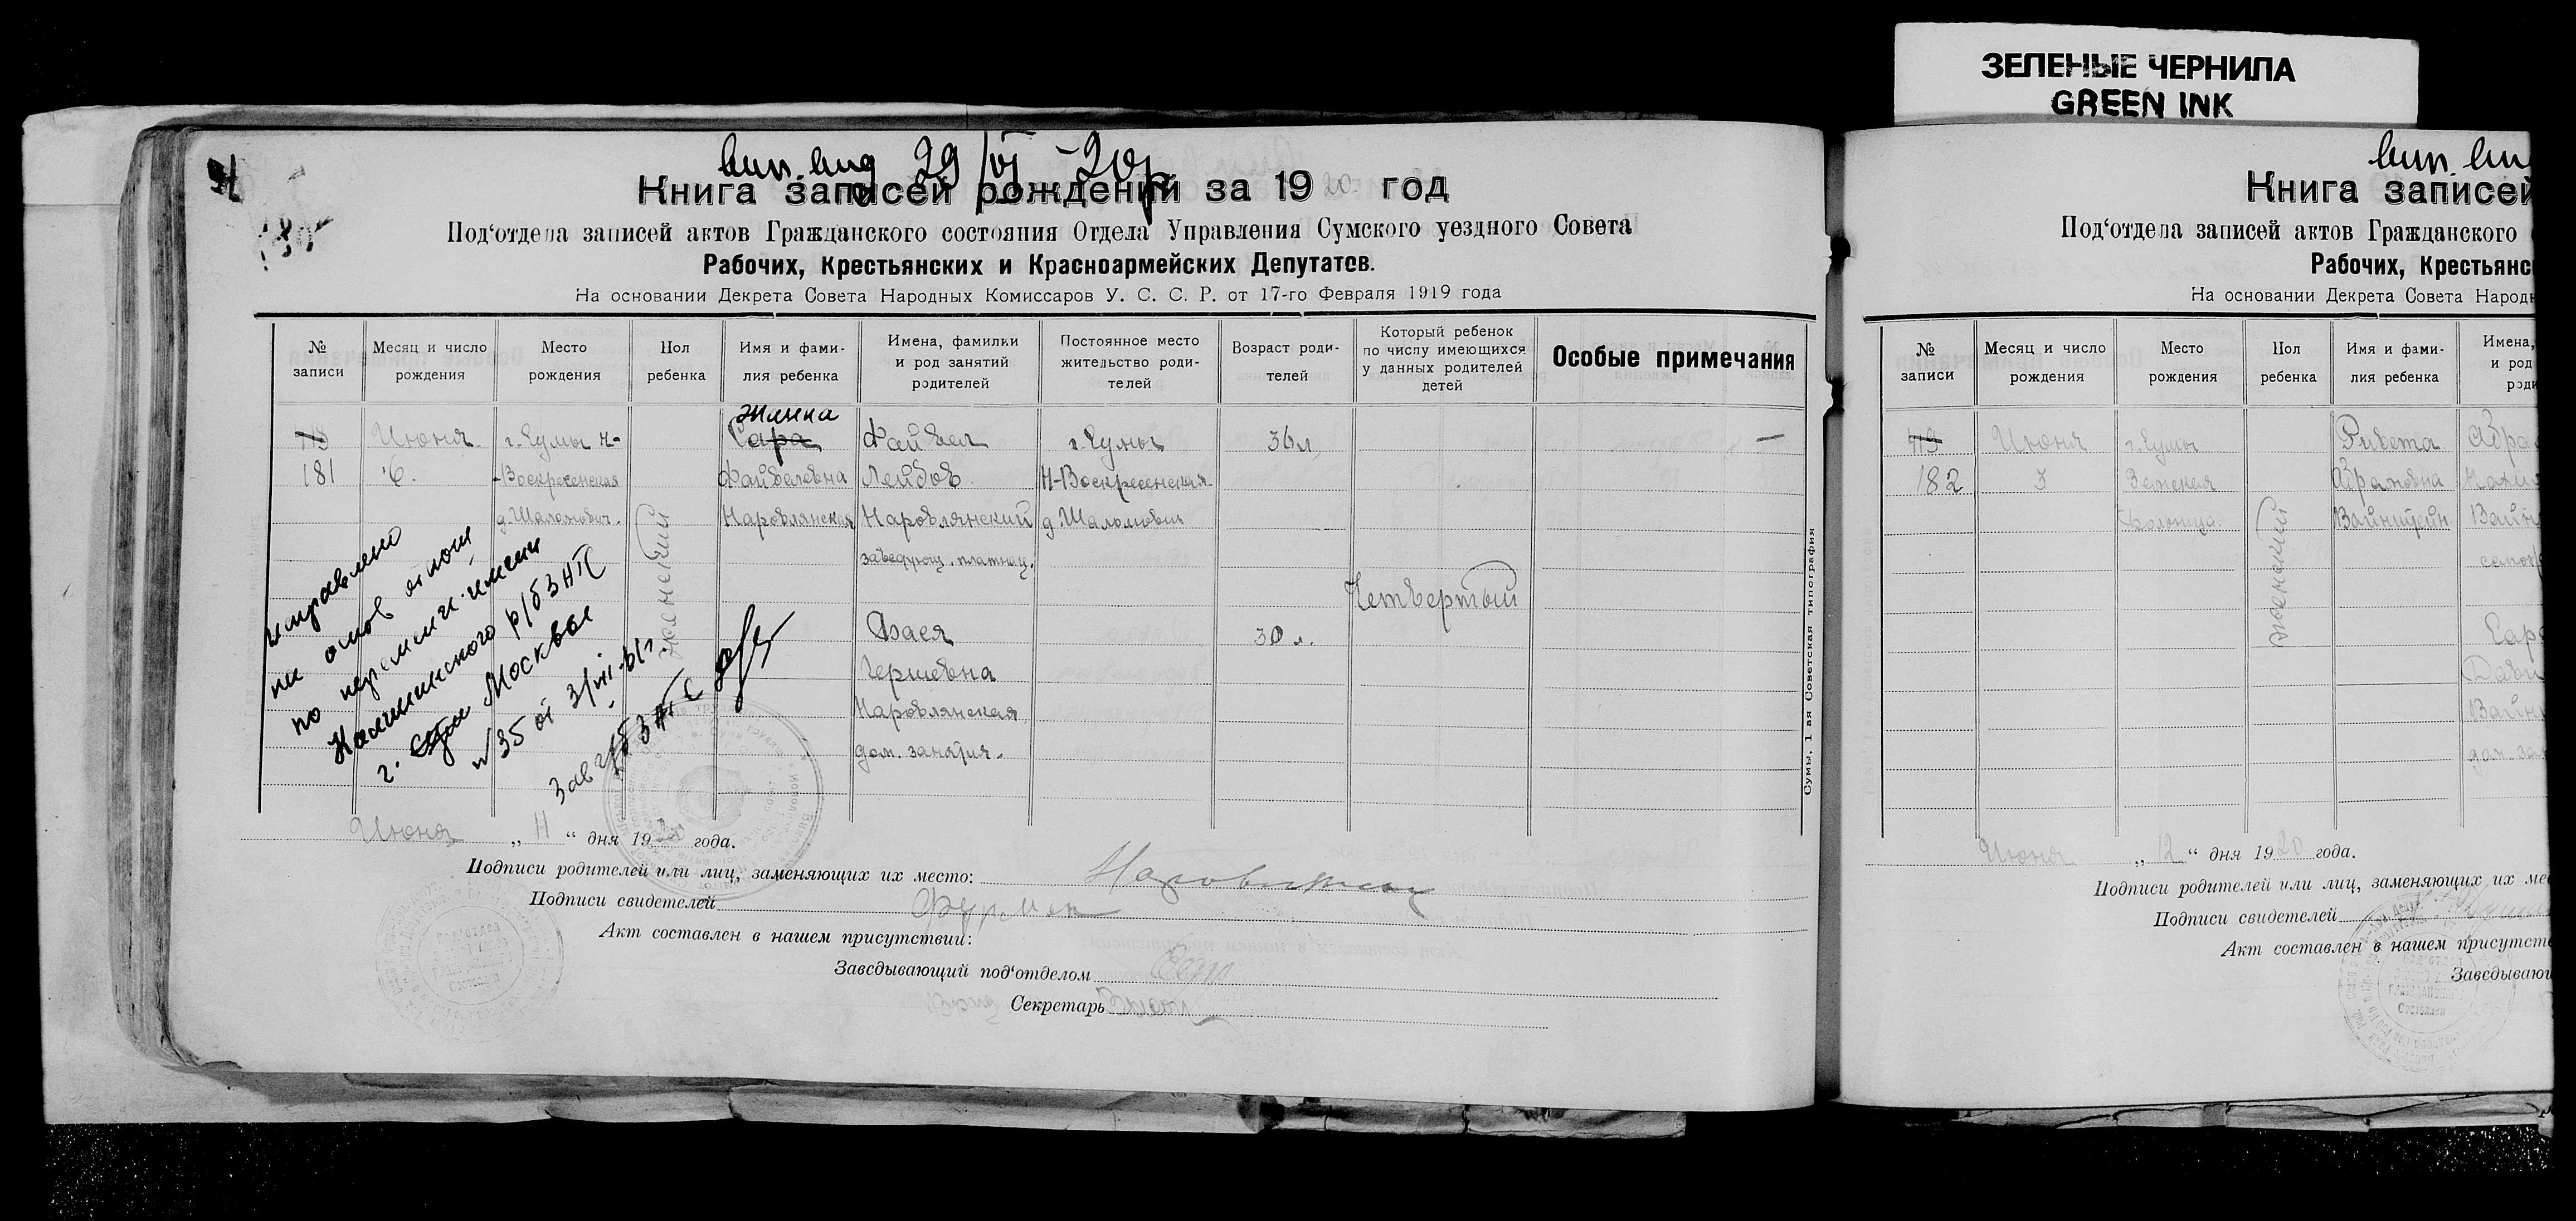 ЗЕЛЕНЫЕ ЧЕРНИЛА
GREEN INK
29/VI-20р
Книга записей рождений за 1920 год
Под‘отдела записей актов Гражданского состояния Отдела Управления Сумского уездного Совета
Рабочих, Крестьянских и Красноармейских Депутатов.
На основании Декрета Совета Народных Комиссаров У. С. С. Р. от 17-го Февраля 1919 года
№ записи
Месяц и число рождения
Место рождения
Пол ребенка
Имя и фами-лия ребенка
Имена, фамилии и род занятий родителей
Постоянное место жительство роди-телей
Возраст роди-телей
Который ребенок по числу имеющихся у данных родителей детей
Особые примечания
181
Июня
6.
г. Сумы Н-
Воскресенская
д. Шаломович.
женский
Жанна
Сара
Файвелевна
Наровлянская
Файвел
Лейбов
Наровлянский
заведующ.
Фаея
Гершевна
Наровлянская
дом. занятия.
г. Сумы
Н-Воскресенская
д. Шаломович
36 л
30 л.
Четвертый
—
исправлено
на основ
по перемени имени
Калининского р/бЗАГС
г. Москвы
№35 от 3/VII-61г.
Зав г/бЗАГС
Июня „ 11 “ дня 1920 года.
Подписи родителей или лиц, заменяющих их место:
Подписи свидетелей Фурман
Акт составлен в нашем присутствии:
Заведывающий под‘отделом
Секретарь
Сумы, 1 ая Советская типография
Книга записей
Под‘отдела записей актов Гражданского
Рабочих, Крестьянс
На основании Декрета Совета Народн
№ записи
Месяц и число рождения
Место рождения
Пол ребенка
Имя и фами-лия ребенка
Имена,
и род
роди
182
Июня
3
г. Сумы
Земская
больница
женский
Ривета
Абрамовна
Вайнштейн
Абра
Вайн
Сара
Дави
Вайн
дом. зан
Июня „ 12 “ дня 1920 года.
Подписи родителей или лиц, заменяющих их мес
Подписи свидетелей
Акт составлен в нашем присутств
Заведываю